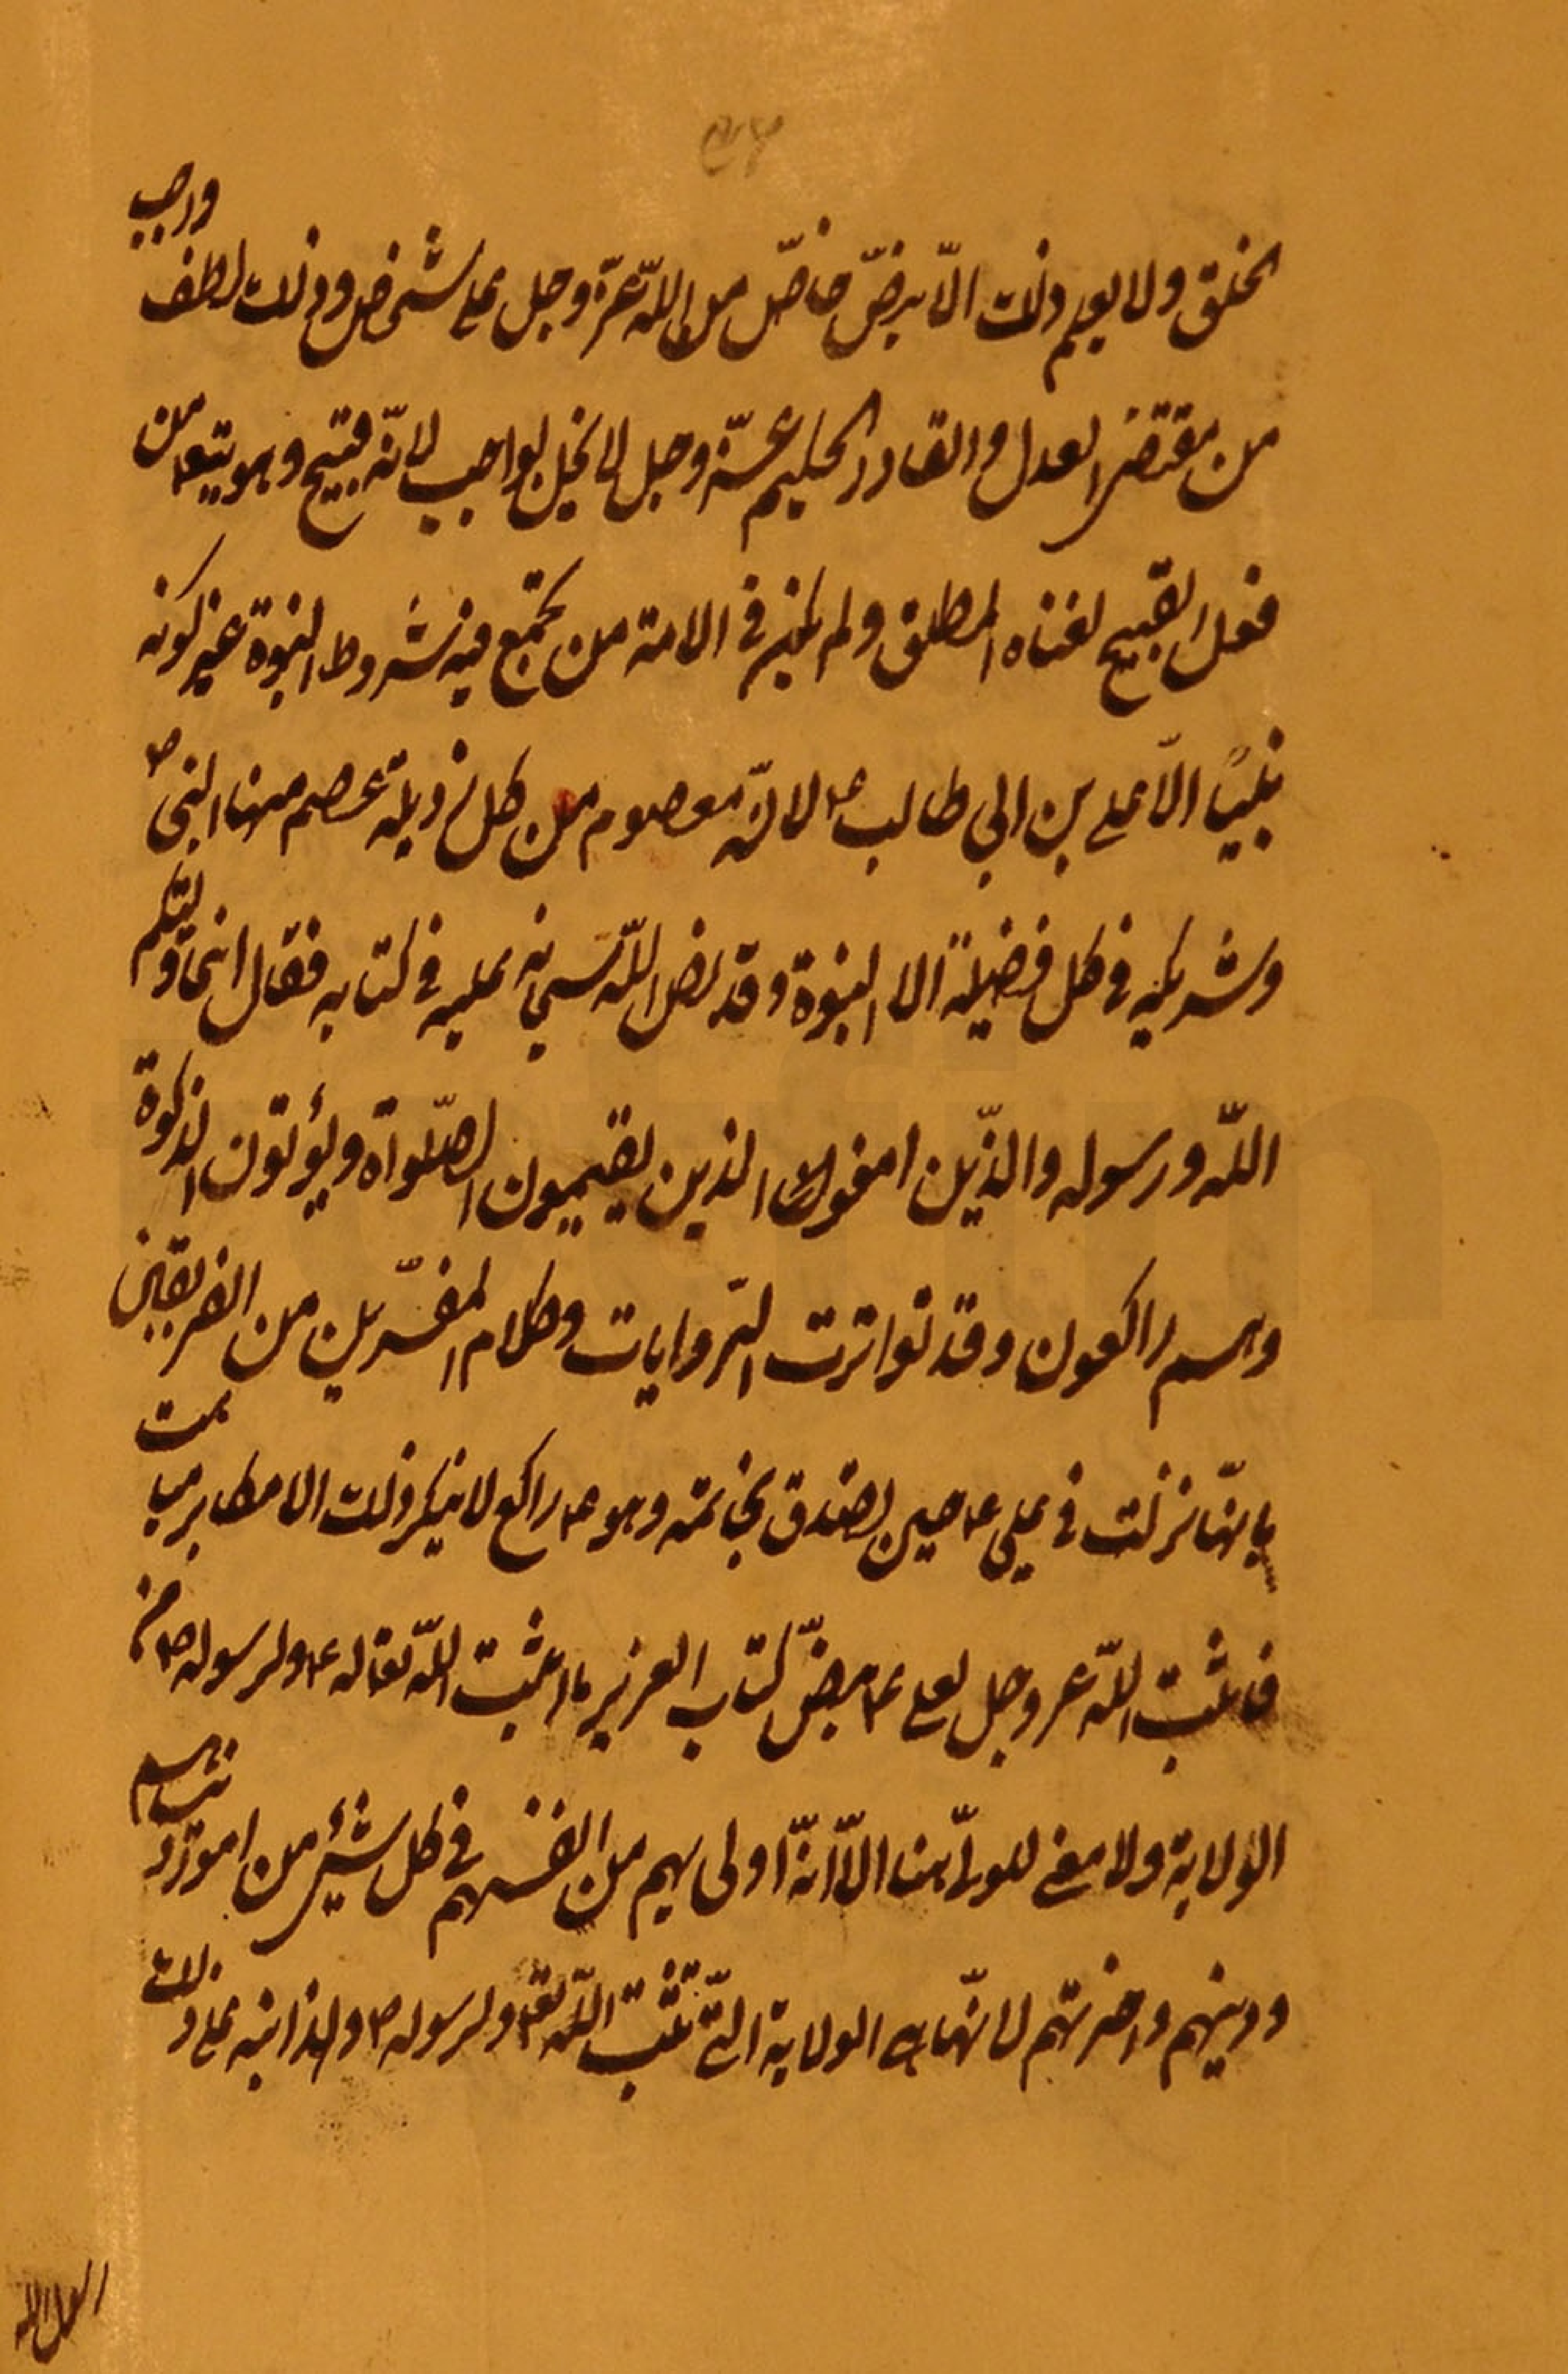 الخلق ولا يعلم ذلك الّا بنصّ خاصّ من اللّه عزّ وجل على شخص وذلك لطف واجب
من مقتضى العدل والقادر الحكيم عزّ وجل لا يخل بواجب لانّه قبيح وهو يتع من
فعل القبيح لغناه المطلق ولم يكن في الامة من يجتمع فيه شروط النبوة غير كونه
نبيّاً الّا على بن ابي طالب ع لانّه معصوم من كل رذيلة عصم منها النبى ص
وشريكه في كل فضيلة الا النبوة وقد نص اللّه سبحانه عليه في كتابه فقال انما وليّكم
اللّه ورسوله والذّين امنوا الذين يقيمون الصّلواة ويؤتون الزكوة
وهم راكعون وقد تواترت الرّوايات وكلام المفسّرين من الفريقين
بانّها نزلت في على ع حين تصدق بخاتمه وهو ع راكع لا ينكر ذلك الا مكابر مباهت
فاثبت اللّه عز وجل لعلى ع بنصّ كتاب العزيز ما اثبت اللّه تعا له ع ولرسوله ص من
الولاية ولا معنى للولاية هنا الّا انّه اولى بهم من انفسهم في كل شيئ من امور دنياهم
ودينهم واخرتهم لانّها هى الولاية الّتى تثبت اللّه تع ولرسوله ص ولهذا نبه على ذلك
رسول الله